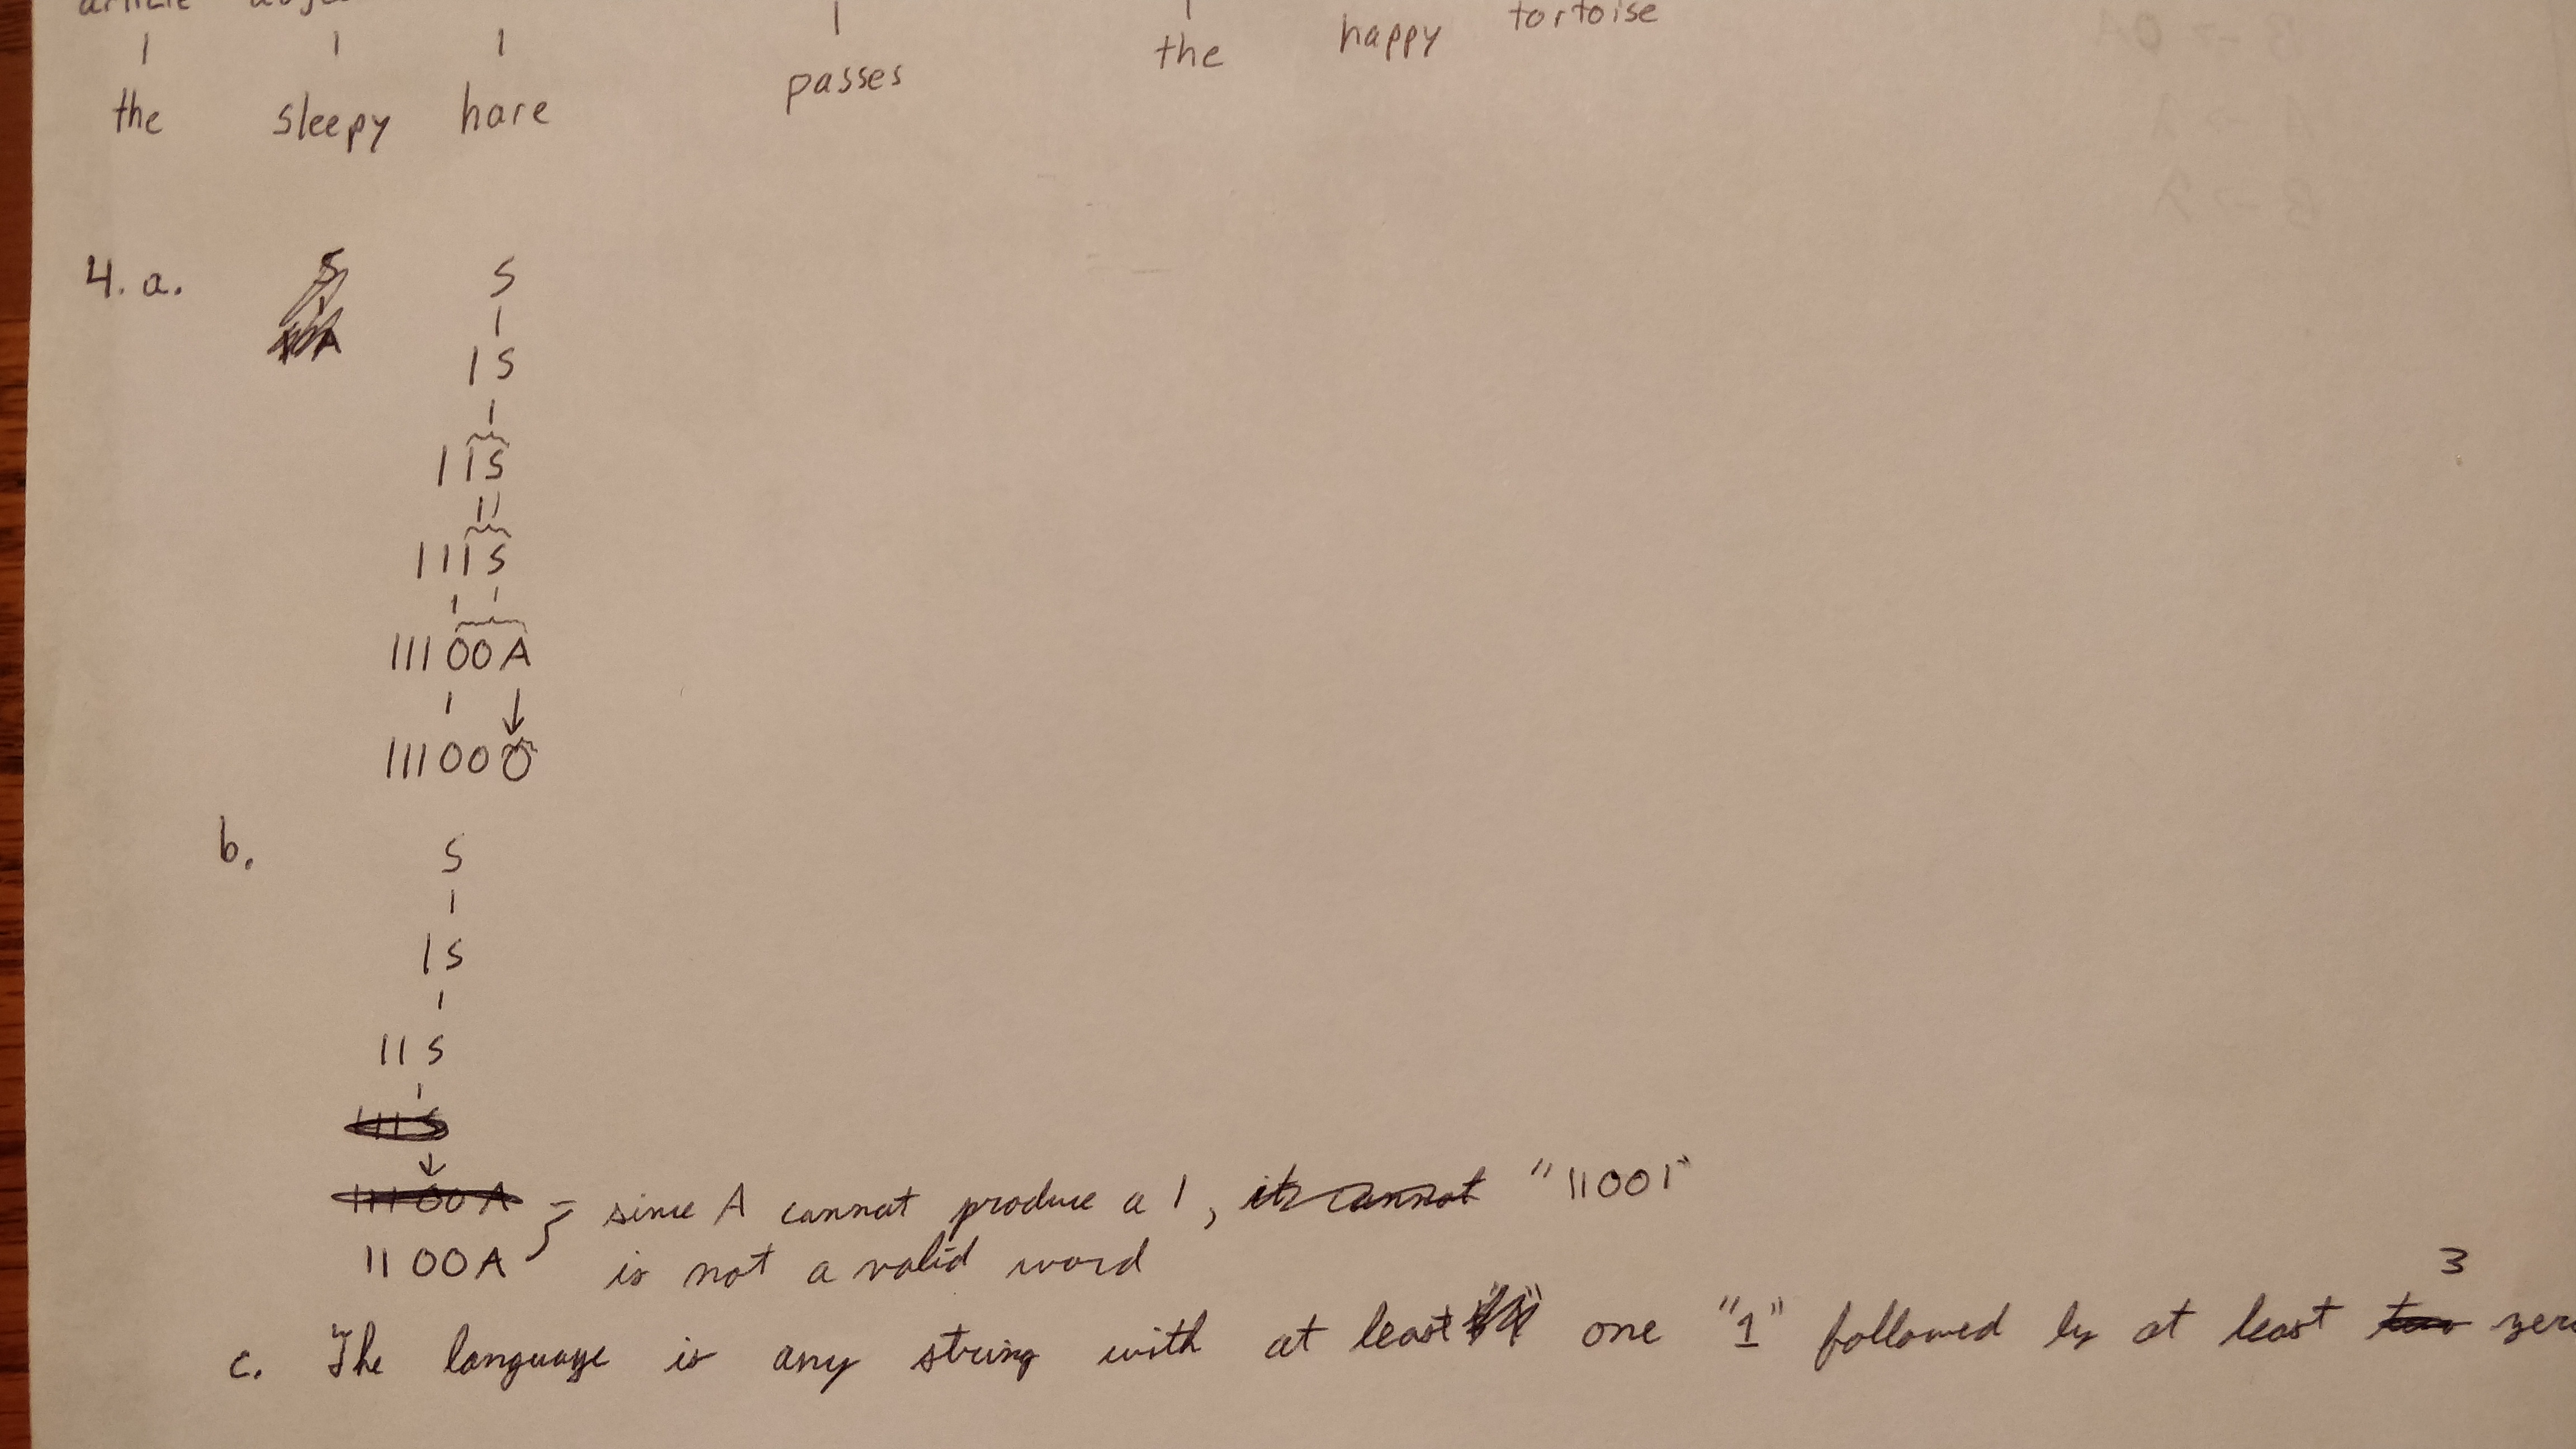 article
the sleepy hare passes the happy tortoise
4. a. S
1S
11S
111S
11100A
111000
b. S
1S
11S
111S
11100A
1100A } - since A cannot produce a 1, it cannot "11001"
is not a valid word
3
c. The language is any string with at least one "1" followed by at least two